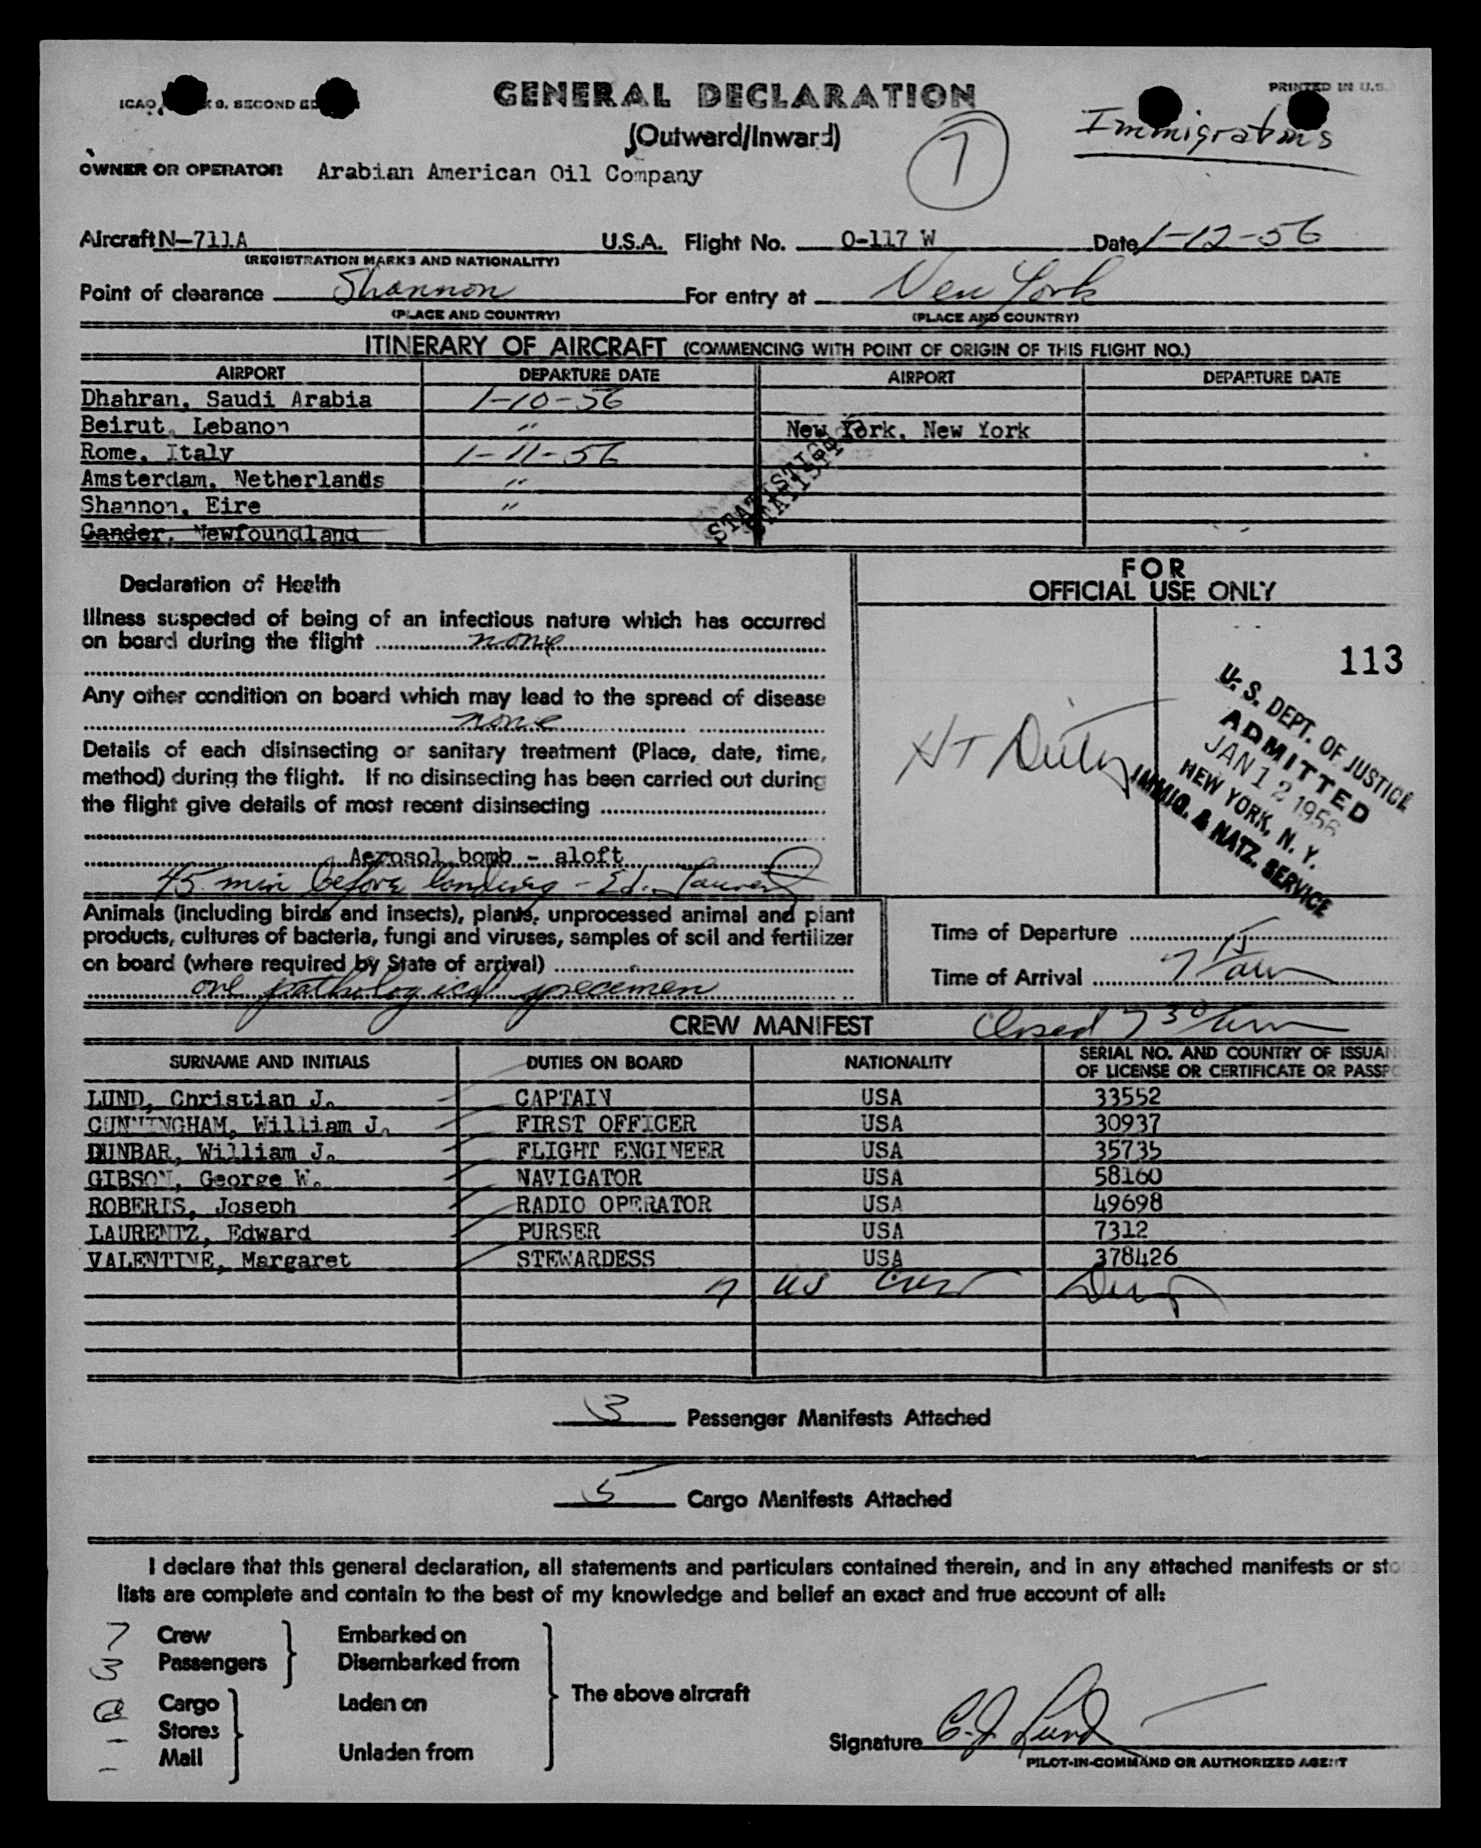 GENERAL DECLARATION
PRINTED IN U.S.
(Outward/Inward)
7
Immigrations
OWNER OR OPERATOR Arabian American Oil Company
Aircraft N-711A U.S.A. Flight No. O-117 W Date 1-12-56
(REGISTRATION MARKS AND NATIONALITY)
Point of clearance Shannon For entry at New York
(PLACE AND COUNTRY) (PLACE AND COUNTRY)
ITINERARY OF AIRCRAFT (COMMENCING WITH POINT OF ORIGIN OF THIS FLIGHT NO.)
AIRPORT DEPARTURE DATE AIRPORT DEPARTURE DATE
Dhahran, Saudi Arabia 1-10-56
Beirut, Lebanon " New York, New York
Rome, Italy 1-11-56
Amsterdam, Netherlands "
Shannon, Eire "
Gander, Newfoundland
STATISTICS
STATISTICS
FOR
OFFICIAL USE ONLY
Declaration of Health
Illness suspected of being of an infectious nature which has occurred
on board during the flight none
Any other condition on board which may lead to the spread of disease
none
Details of each disinsecting or sanitary treatment (Place, date, time,
method) during the flight. If no disinsecting has been carried out during
the flight give details of most recent disinsecting
Aerosol bomb - aloft
45 min before landing - Ed. Laurentz
113
U. S. DEPT. OF JUSTICE
ADMITTED
JAN 12 1956
NEW YORK, N. Y.
IMMIG. & NATZ. SERVICE
Animals (including birds and insects), plants, unprocessed animal and plant
products, cultures of bacteria, fungi and viruses, samples of soil and fertilizer
on board (where required by State of arrival)
one pathological specimen
Time of Departure
Time of Arrival 7 15 am
CREW MANIFEST Closed 7 30 am
SURNAME AND INITIALS DUTIES ON BOARD NATIONALITY SERIAL NO. AND COUNTRY OF ISSUAN
OF LICENSE OR CERTIFICATE OR PASSPO
LUND, Christian J. CAPTAIN USA 33552
CUNNINGHAM, William J. FIRST OFFICER USA 30937
DUNBAR, William J. FLIGHT ENGINEER USA 35735
GIBSON, George W. NAVIGATOR USA 58160
ROBERTS, Joseph RADIO OPERATOR USA 49698
LAURENTZ, Edward PURSER USA 7312
VALENTINE, Margaret STEWARDESS USA 378426
7 US Crew
3 Passenger Manifests Attached
5 Cargo Manifests Attached
I declare that this general declaration, all statements and particulars contained therein, and in any attached manifests or sto
lists are complete and contain to the best of my knowledge and belief an exact and true account of all:
7 Crew Embarked on
3 Passengers Disembarked from
Cargo Laden on
The above aircraft
- Stores
- Mail Unladen from
Signature C. J. Lund
PILOT-IN-COMMAND OR AUTHORIZED AGENT